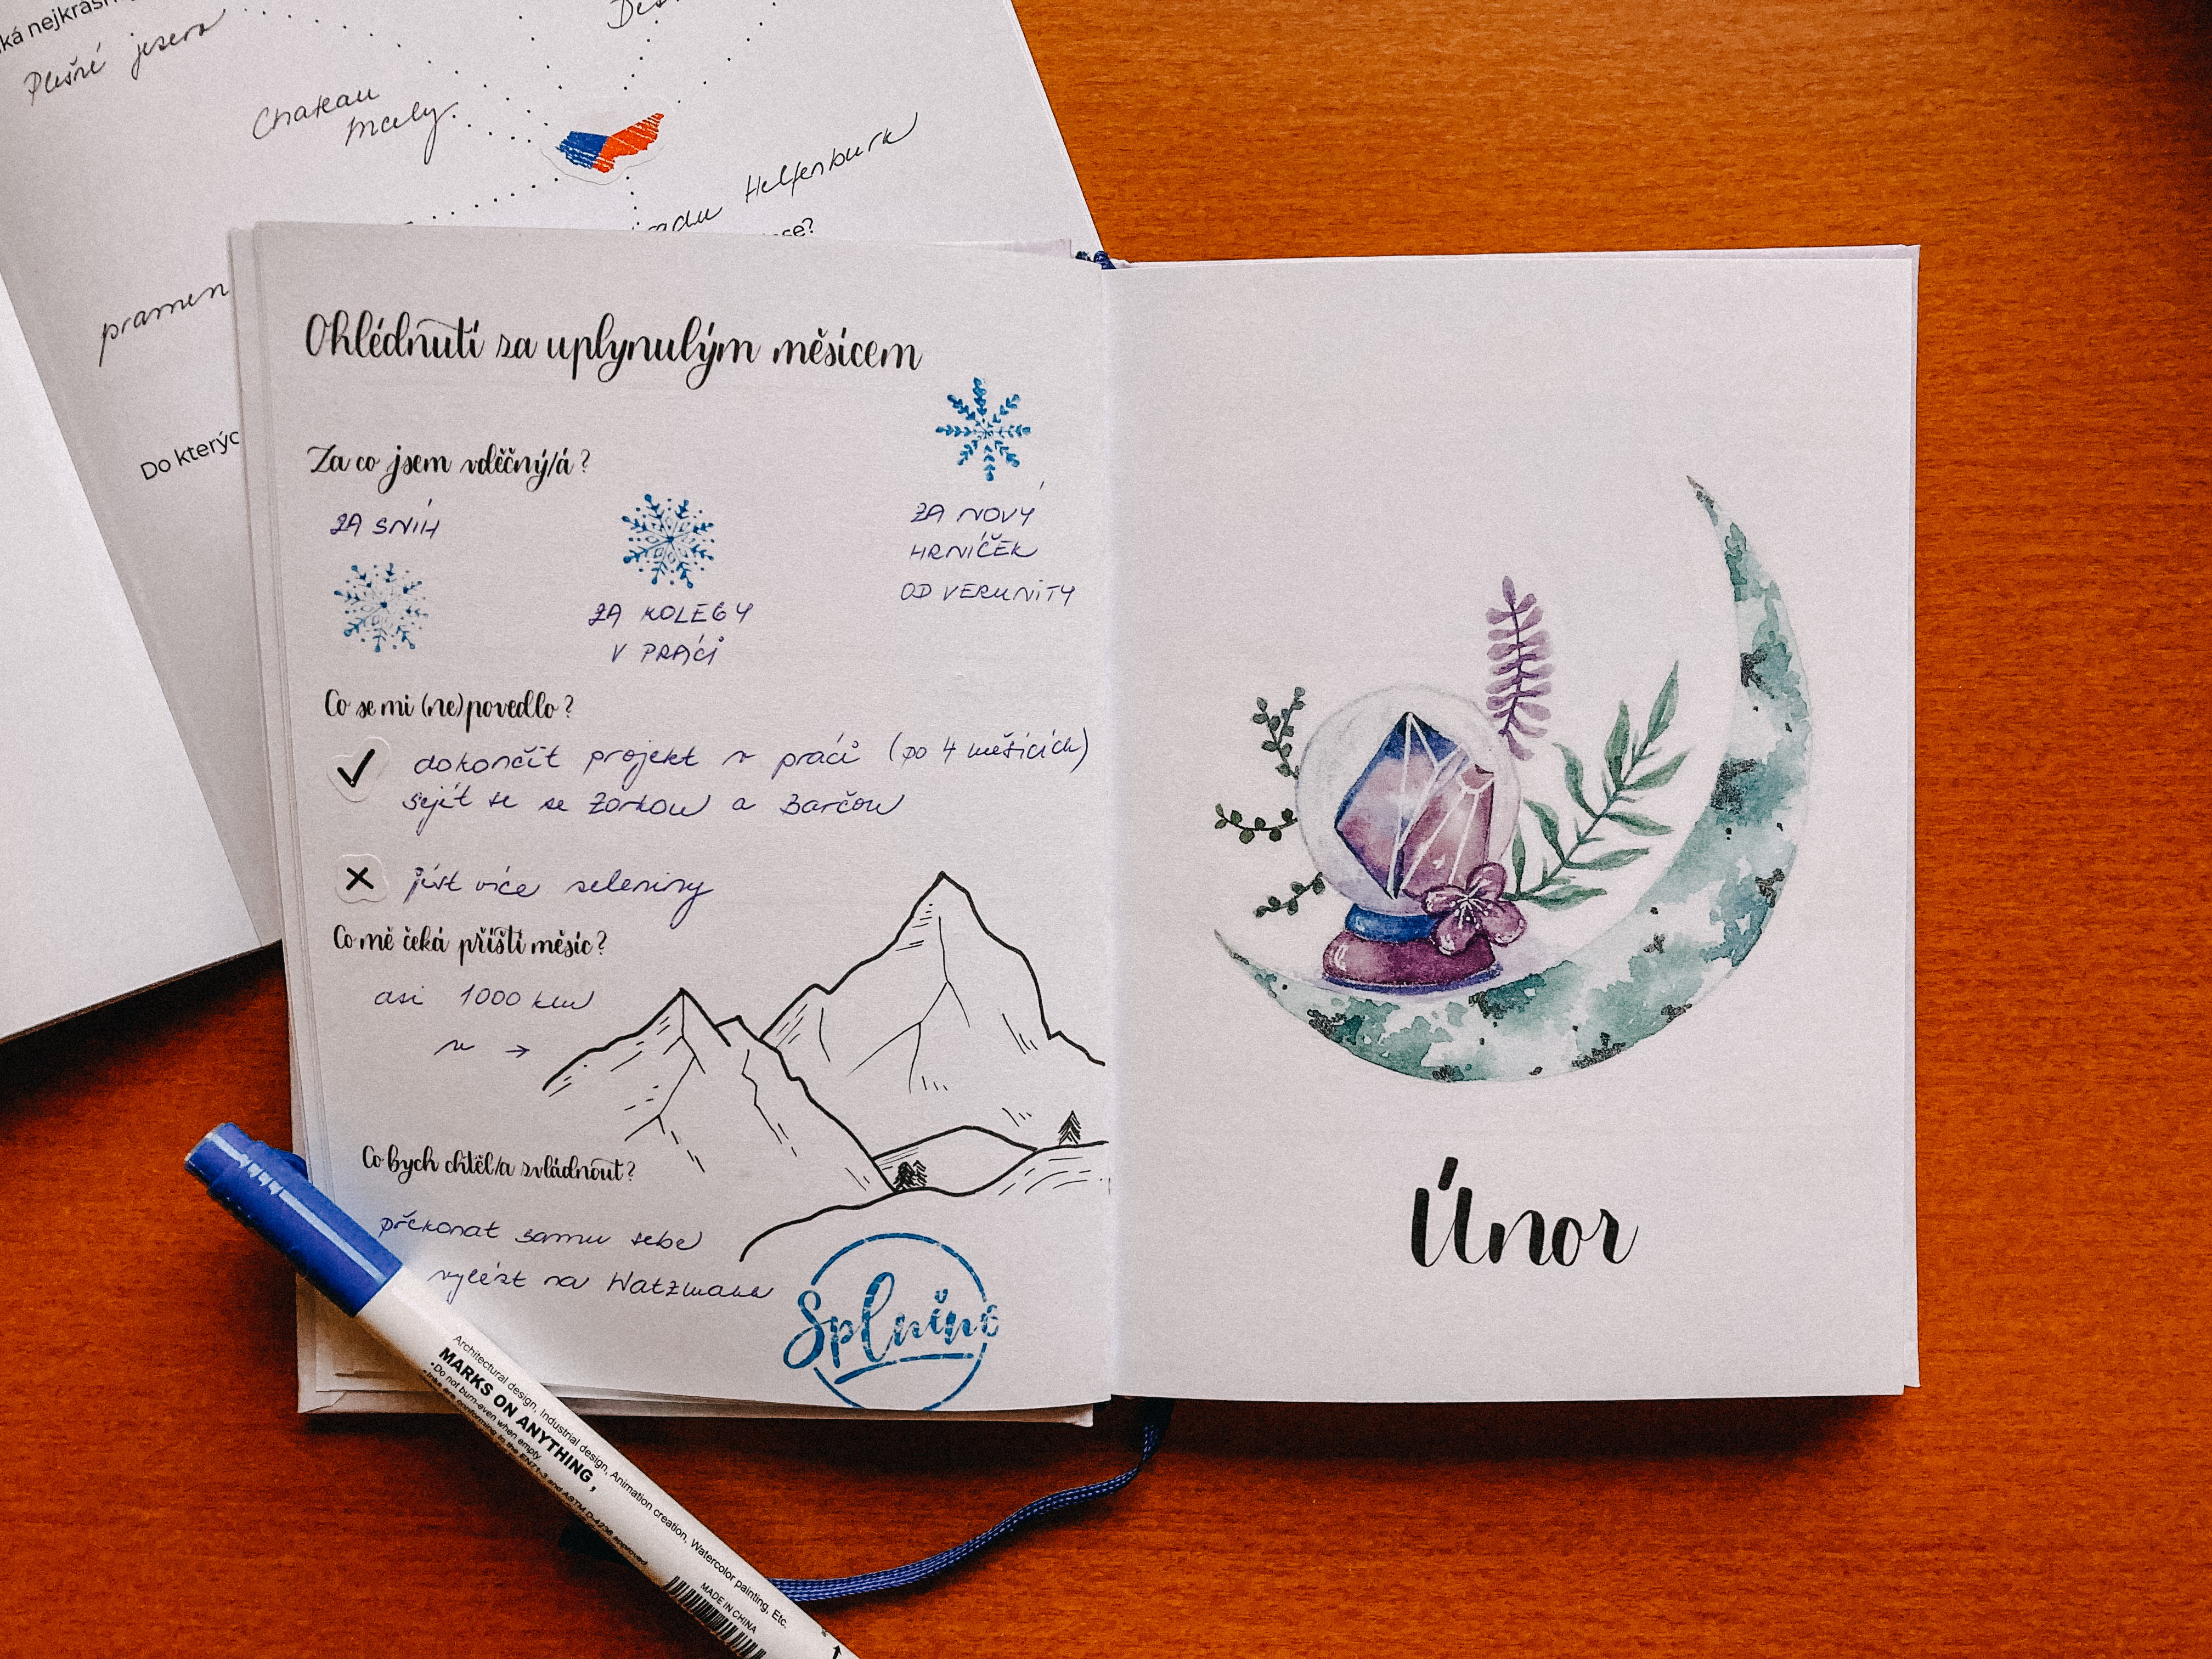 Plešné jezero
Chateau
Mcely
Helfenburk
pramen
Do kterýc
Ohlédnutí za uplynulým měsícem
Za co jsem vděčný/á?
ZA SNÍH
ZA KOLEGY
V PRÁCI
ZA NOVÝ
HRNÍČEK
OD VERUNITY
Co se mi (ne)povedlo?
dokončit projekt v práci (po 4 měsících)
sejít se se Zorkou a Barčou
jíst více zeleniny
Co mě čeká příští měsíc?
asi 1000 km
v →
Co bych chtěl/a zvládnout?
překonat samu sebe
vylézt na Watzmann
Splněno
Únor
Architectural design, Industrial design, Animation creation, Watercolor painting, Etc.
MARKS ON ANYTHING,
•Do not burn-even when empty
•Inks are conforming to the EN71-3 and ASTM D-4236 approved.
MADE IN CHINA